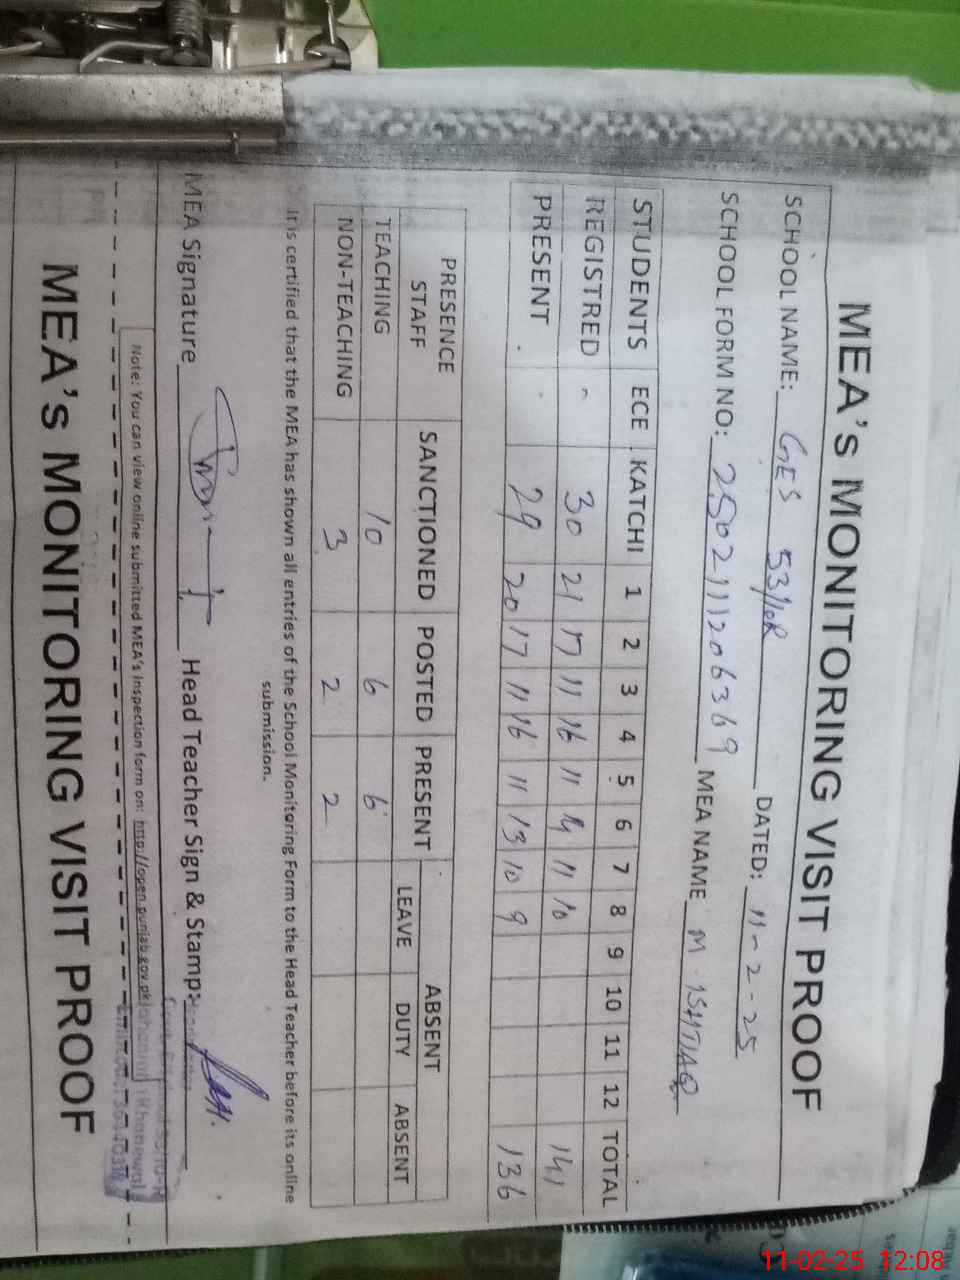 MEA's MONITORING VISIT PROOF
SCHOOL NAME: GES 53/10R DATED: 11-2-25
SCHOOL FORM NO: 2502111206369 MEA NAME M ISHTIAQ
STUDENTS ECE KATCHI 1 2 3 4 5 6 7 8 9 10 11 12 TOTAL
REGISTRED - 30 21 17 11 16 11 14 11 10 141
PRESENT - 29 20 17 11 16 11 13 10 9 136
PRESENCE STAFF SANCTIONED POSTED PRESENT ABSENT
LEAVE DUTY ABSENT
TEACHING 10 6 6
NON-TEACHING 3 2 2
It is certified that the MEA has shown all entries of the School Monitoring Form to the Head Teacher before its online
submission.
MEA Signature Head Teacher Sign & Stamp:
Note: You can view online submitted MEA's Inspection form on: http://open.punjab.gov.pk
Khanewal
MEA's MONITORING VISIT PROOF
11-02-25 12:08